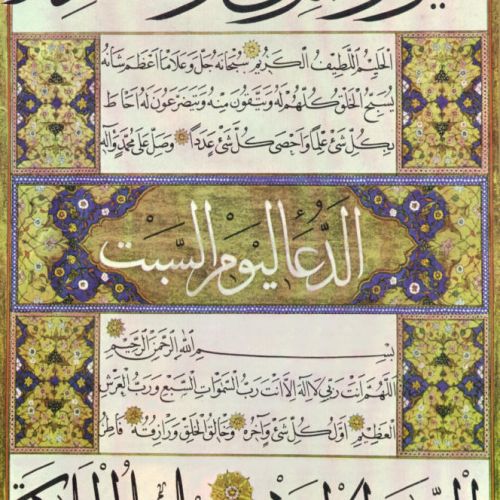 الْحَلِيمُ اللَّطِيفُ الْكَرِيمُ سُبْحَانَهُ جَلَّ وَعَلَا مَا أَعْظَمَ شَانَهُ
يُسَبِّحُ الْخَلْقُ كُلُّهُمْ لَهُ وَيَتَّقُونَ مِنْهُ وَيَتَضَرَّعُونَ لَهُ أَحَاطَ
بِكُلِّ شَئٍ عِلْمًا وَأَحْصَى كُلَّ شَئٍ عَدَدًا وَصَلِّ عَلَى مُحَمَّدٍ وَآلِهِ
الدُّعَا الْيَوْمِ السَّبْت
بِسْمِ اللهِ الرَّحْمٰنِ الرَّحِيمِ
اللَّهُمَّ أَنْتَ رَبِّي لَا إِلَهَ إِلَّا أَنْتَ رَبُّ السَّمٰوَاتِ السَّبْعِ وَرَبُّ الْعَرْشِ
الْعَظِيمِ أَوَّلُ كُلِّ شَئٍ وَآخِرُهُ وَخَالِقُ الْخَلْقِ وَرَازِقُهُ فَاطِرُ